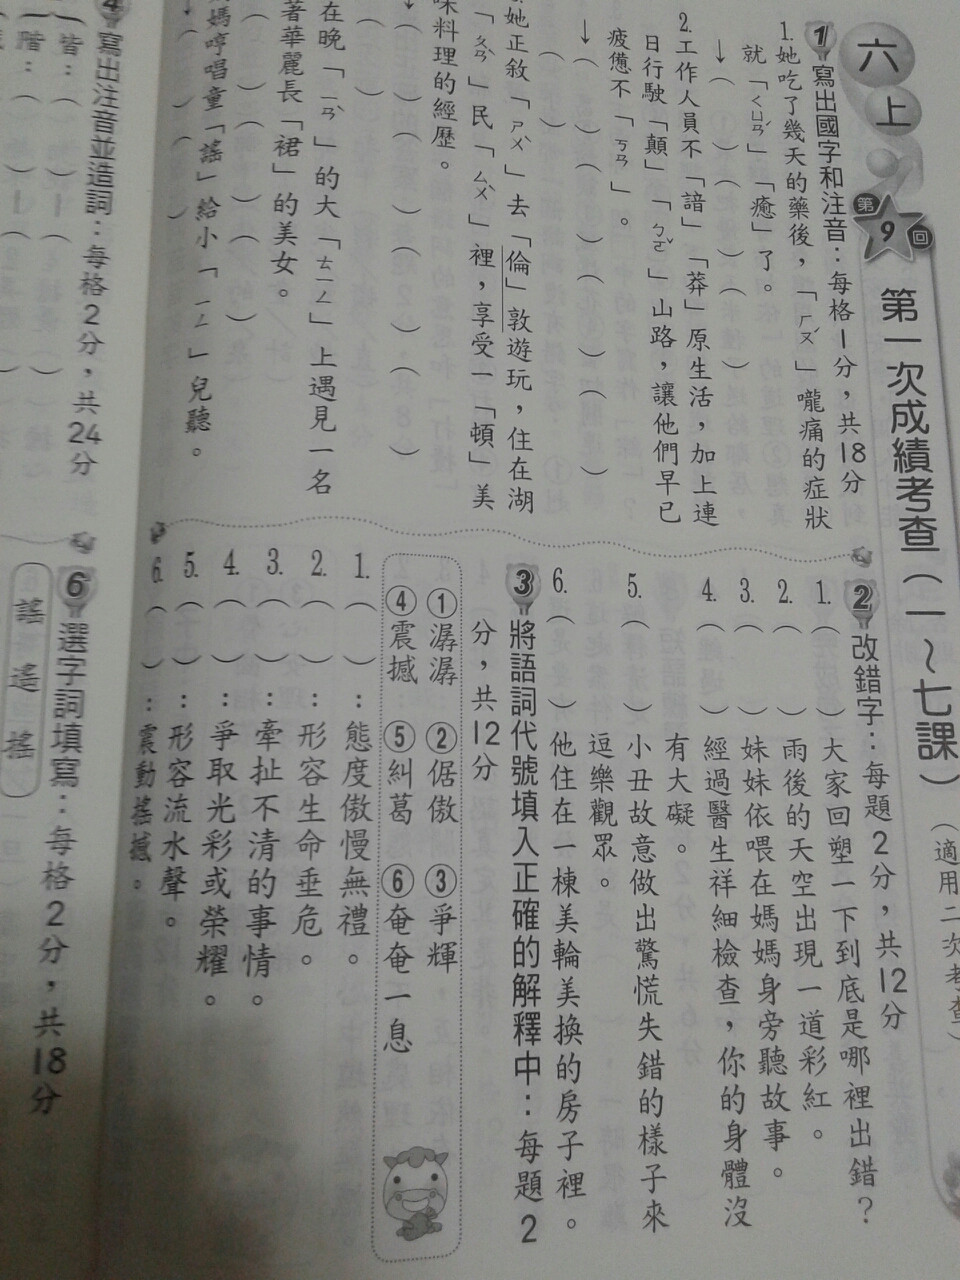 六上
第9回
第一次成績考查(一~七課)
(適用二次考查)
1 寫出國字和注音:每格1分,共18分
1.她吃了幾天的藥後,「ㄏㄡˊ」嚨痛的症狀
就「ㄑㄩㄢˊ」「癒」了。
↓( )( )( )
2.工作人員不「諳」「莽」原生活,加上連
日行駛「顛」「ㄅㄛˇ」山路,讓他們早已
疲憊不「ㄎㄢ」。
↓( )( )( )( )
( )
她正敘「ㄕㄨ」去「倫」敦遊玩,住在湖
「ㄆㄢˋ」民「ㄙㄨˋ」裡,享受一「頓」美
味料理的經歷。
↓( )( )( )( )
( )
在晚「ㄧㄢˋ」的大「ㄊㄧㄥ」上遇見一名
著華麗長「裙」的美女。
( )( )( )
媽哼唱童「謠」給小「ㄧㄥ」兒聽。
( )( )
2 改錯字:每題2分,共12分
1.( )大家回塑一下到底是哪裡出錯?
2.( )雨後的天空出現一道彩紅。
3.( )妹妹依喂在媽媽身旁聽故事。
4.( )經過醫生祥細檢查,你的身體沒
有大礙。
5.( )小丑故意做出驚慌失錯的樣子來
逗樂觀眾。
6.( )他住在一棟美輪美換的房子裡。
3 將語詞代號填入正確的解釋中:每題2
分,共12分
①潺潺 ②倨傲 ③爭輝
④震撼 ⑤糾葛 ⑥奄奄一息
1.( ):態度傲慢無禮。
2.( ):形容生命垂危。
3.( ):牽扯不清的事情。
4.( ):爭取光彩或榮耀。
5.( ):形容流水聲。
6.( ):震動搖撼。
4 寫出注音並造詞:每格2分,共24分
皆:( )
階:( )
6 選字詞填寫:每格2分,共18分
謠 遙 搖